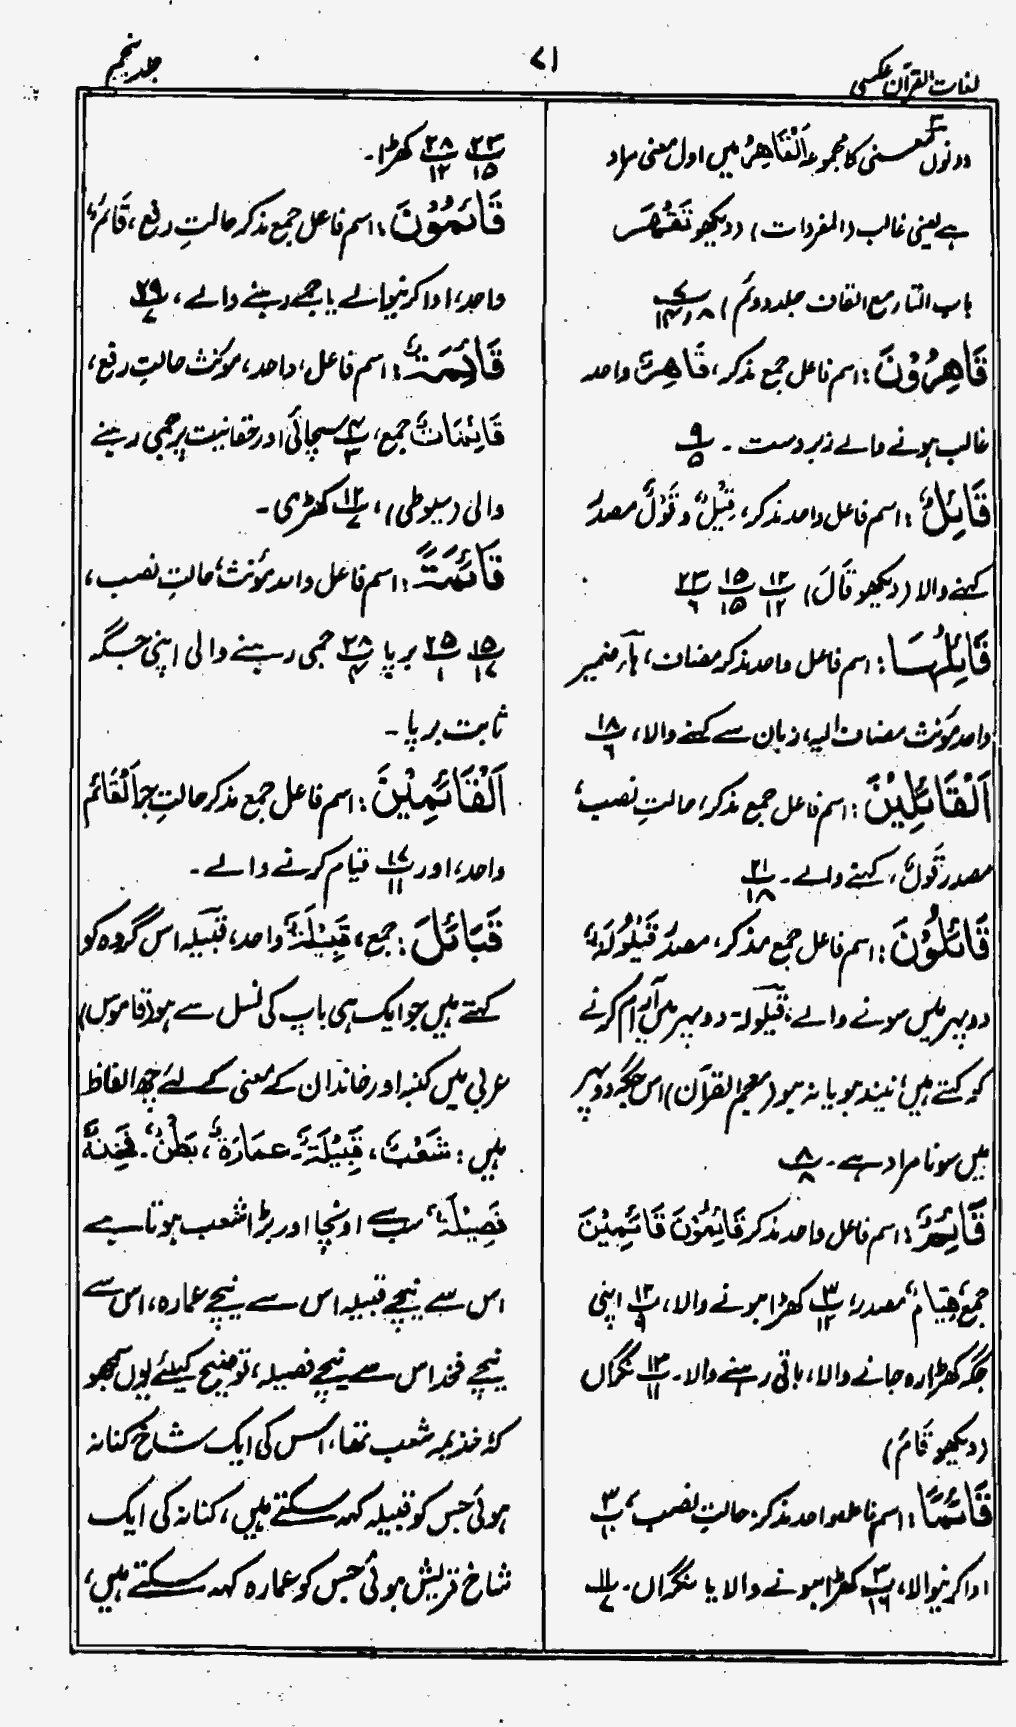 لغات القرآن عکسی
۷۱
جلد پنجم
دونوں معنی کا مجموعہ اَلْقَاهِرُ میں اول معنی مراد
ہے یعنی غالب (المفردات) (دیکھو تَقْهَرْ
باب التار مع القاف جلد دوئم) ۷/۱۴،۱۸
قَاهِرُوْنَ: اسم فاعل جمع مذکر، قَاهِرٌ واحد
غالب ہونے والے زبردست۔ ۹/۵
قَائِلٌ: اسم فاعل واحد مذکر، قِيْلٌ و قَوْلٌ مصدر
کہنے والا (دیکھو قَالَ) ۱۲/۱۲ ۱۵/۱۵ ۲۳/۶
قَائِلُهَا: اسم فاعل واحد مذکر مضاف، ہا ضمیر
واحد مؤنث مضاف الیہ، زبان سے کہنے والا، ۱۸/۶
اَلْقَائِلِيْنَ: اسم فاعل جمع مذکر، حالتِ نصب،
مصدر قَوْلٌ، کہنے والے۔ ۲۱/۱۸
قَائِلُوْنَ: اسم فاعل جمع مذکر، مصدر قَيْلُوْلَةٌ
دوپہر میں سونے والے، قیلولہ دوپہر میں آرام کرنے
کو کہتے ہیں، نیند ہو یا نہ ہو (معجم القرآن) اس جگہ دوپہر
میں سونا مراد ہے۔ ۸/۸
قَائِمٌ: اسم فاعل واحد مذکر قَائِمُوْنَ قَائِمِيْنَ
جمع، قِيَامٌ مصدر، ۳/۱۲ کھڑا ہونے والا، ۱۲/۹ اپنی
جگہ کھڑا رہ جانے والا، باقی رہنے والا۔ ۱۳/۱۱ نگراں
(دیکھو قَامَ)
قَائِمًا: اسم فاعل واحد مذکر، حالتِ نصب، ۳/۱۰
ادا کرنیوالا، ۳/۱۶ کھڑا ہونے والا یا نگراں۔ ۱۱/۷
۲۳/۱۵ ۲۸/۱۲ کھڑا۔
قَائِمُوْنَ: اسم فاعل جمع مذکر حالتِ رفع، قَائِمٌ
واحد، ادا کرنیوالے یا جمے رہنے والے، ۲۹/۷
قَائِمَةٌ: اسم فاعل، واحد، مؤنث حالتِ رفع،
قَائِمَاتٌ جمع، ۴/۳ سچائی اور حقانیت پر جمی رہنے
والی (سیوطی)، ۱۲/۷ کھڑی۔
قَائِمَةً: اسم فاعل واحد مؤنث، حالتِ نصب،
۱۵/۱۷ ۲۵/۱ برپا ۲۸/۴ جمی رہنے والی اپنی جگہ
ثابت برپا۔
اَلْقَائِمِيْنَ: اسم فاعل جمع مذکر حالتِ جر اَلْقَائِمُ
واحد، اور ۱۷/۱۱ قیام کرنے والے۔
قَبَائِلَ: جمع، قَبِيْلَةٌ واحد، قبیلہ اس گروہ کو
کہتے ہیں جو ایک ہی باپ کی نسل سے ہو (قاموس)
عربی میں کنبہ اور خاندان کے معنی کے لئے چھ الفاظ
ہیں: شَعْبٌ، قَبِيْلَةٌ۔ عِمَارَةٌ، بَطْنٌ۔ فَخِذٌ
فَصِيْلَةٌ، سب سے اونچا اور بڑا شعب ہوتا ہے
اس سے نیچے قبیلہ اس سے نیچے عمارہ، اس سے
نیچے فخذ اس سے نیچے فصیلہ، توضیح کیلئے یوں سمجھو
کہ خذیمہ شعب تھا، اس کی ایک شاخ کنانہ
ہوئی جس کو قبیلہ کہہ سکتے ہیں، کنانہ کی ایک
شاخ قریش ہوئی جس کو عمارہ کہہ سکتے ہیں،